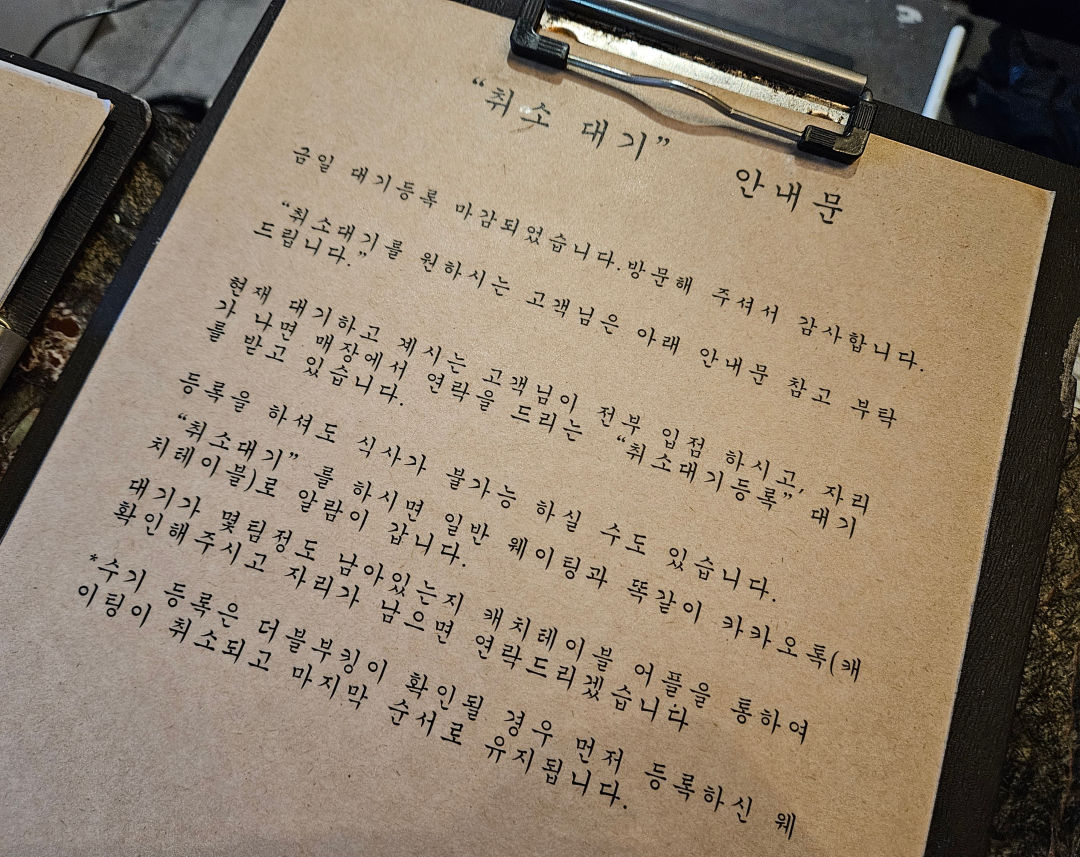 “취소 대기” 안내문
금일 대기등록 마감되었습니다. 방문해 주셔서 감사합니다.
“취소대기를 원하시는 고객님은 아래 안내문 참고 부탁
드립니다.”
현재 대기하고 계시는 고객님이 전부 입점 하시고, 자리
가 나면 매장에서 연락을 드리는 “취소대기등록” 대기
를 받고 있습니다.
등록을 하셔도 식사가 불가능 하실 수도 있습니다.
“취소대기” 를 하시면 일반 웨이팅과 똑같이 카카오톡(캐
치테이블)로 알람이 갑니다.
대기가 몇팀정도 남아있는지 캐치테이블 어플을 통하여
확인해주시고 자리가 남으면 연락드리겠습니다
*수기 등록은 더블부킹이 확인될 경우 먼저 등록하신 웨
이팅이 취소되고 마지막 순서로 유지됩니다.